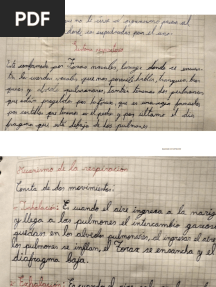 PDF
que no le sirve al organismo pasa al
son expulsados por el aire.
Está conformado por fosas nasales, laringe donde se encuen-
tra las cuerdas vocales que nos permite hablar, bronquios, bron-
quios y alveolos pulmonares, también tenemos dos pulmones
que están protegidos por la pleura, que es una capa formada
por costillas que tenemos en el pecho y por último el dia-
fragma que está debajo de los pulmones.
Mecanismo de la respiración
Consta de dos movimientos:
-Inhalación: Es cuando el aire ingresa a la nariz
y llega a los pulmones el intercambio gaseoso
quedan en los alveolos pulmonares, al ingresar el aire
los pulmones se inflan, el Torax se ensancha y el
diafragma baja.
-Exhalación: Es cuando el